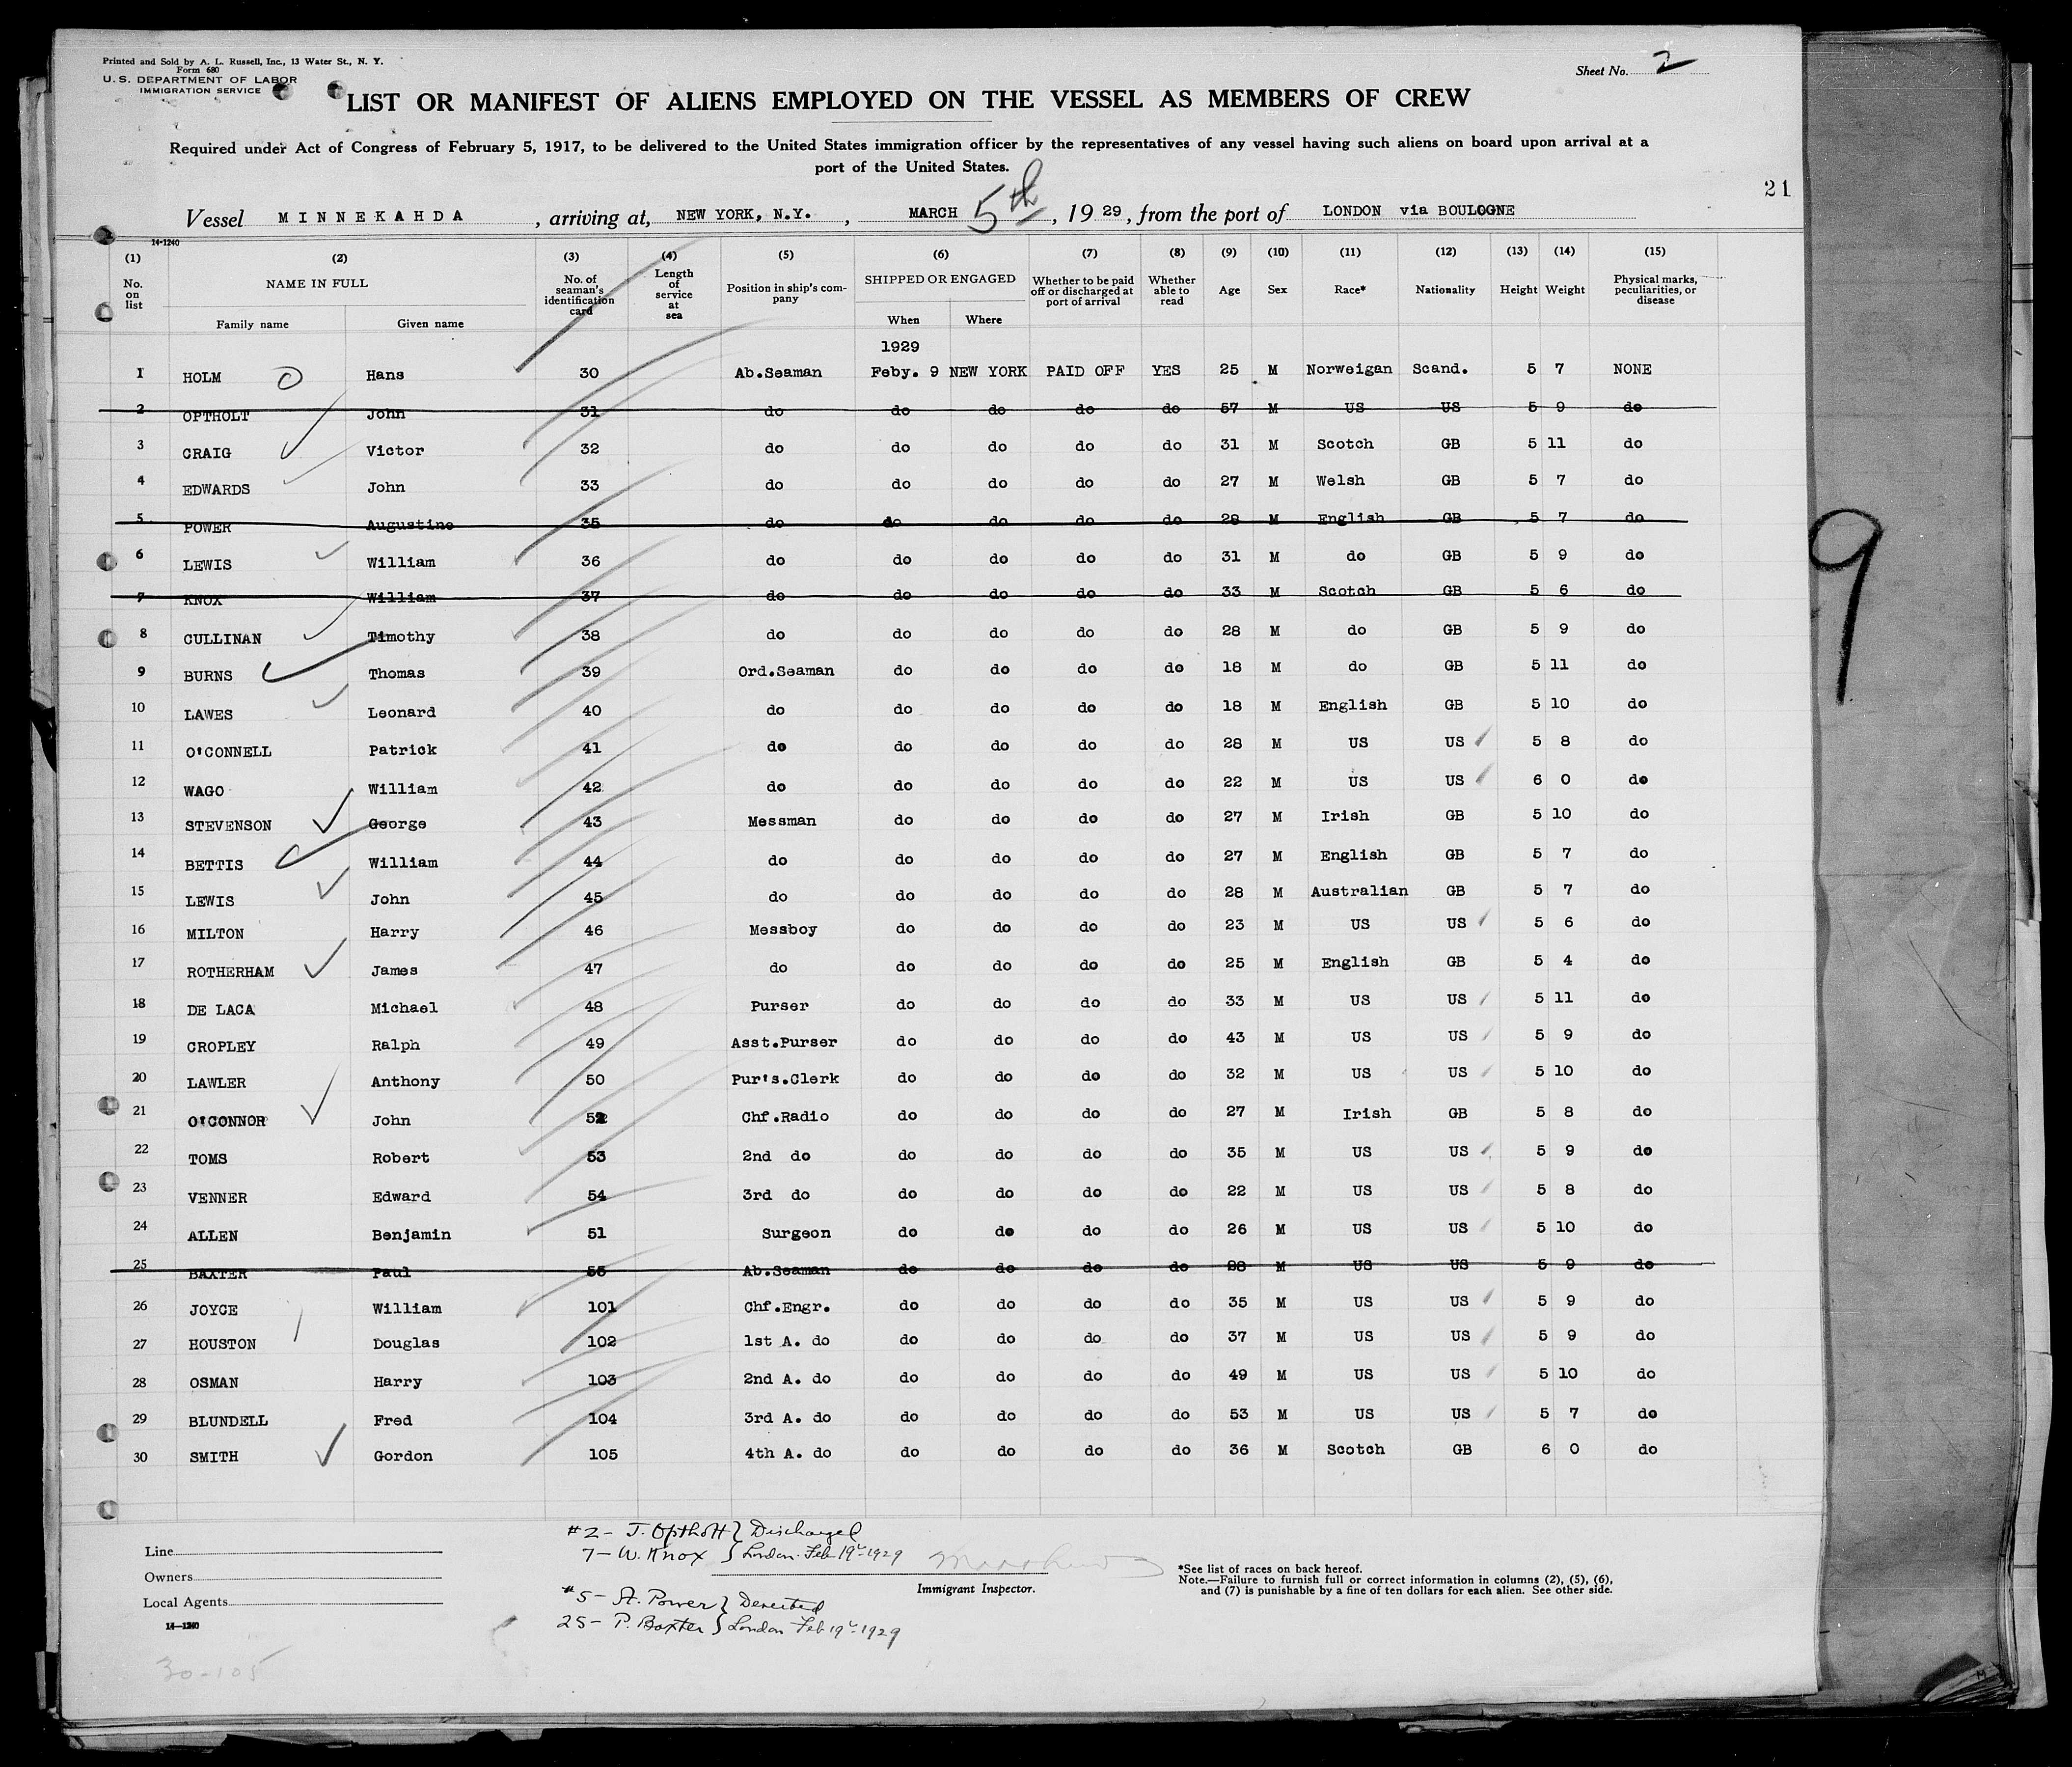 Printed and Sold by A. L. Russell, Inc., 13 Water St., N. Y.
Form 680
U. S. DEPARTMENT OF LABOR
IMMIGRATION SERVICE
Sheet No. 2
LIST OR MANIFEST OF ALIENS EMPLOYED ON THE VESSEL AS MEMBERS OF CREW
Required under Act of Congress of February 5, 1917, to be delivered to the United States immigration officer by the representatives of any vessel having such aliens on board upon arrival at a
port of the United States.
21
Vessel MINNEKAHDA, arriving at, NEW YORK, N.Y., MARCH 5th, 1929, from the port of LONDON via BOULOGNE
14-1240
(1) (2) (3) (4) (5) (6) (7) (8) (9) (10) (11) (12) (13) (14) (15)
No. on list NAME IN FULL Family name Given name No. of seaman's identification card Length of service at sea Position in ship's company SHIPPED OR ENGAGED When Where Whether to be paid off or discharged at port of arrival Whether able to read Age Sex Race* Nationality Height Weight Physical marks, peculiarities, or disease
1929
1 HOLM Hans 30 Ab.Seaman Feby. 9 NEW YORK PAID OFF YES 25 M Norweigan Scand. 5 7 NONE
2 OPTHOLT John 31 do do do do do 57 M US US 5 9 do
3 CRAIG Victor 32 do do do do do 31 M Scotch GB 5 11 do
4 EDWARDS John 33 do do do do do 27 M Welsh GB 5 7 do
5 POWER Augustine 35 do do do do do 28 M English GB 5 7 do
6 LEWIS William 36 do do do do do 31 M do GB 5 9 do
7 KNOX William 37 do do do do do 33 M Scotch GB 5 6 do
8 CULLINAN Timothy 38 do do do do do 28 M do GB 5 9 do
9 BURNS Thomas 39 Ord.Seaman do do do do 18 M do GB 5 11 do
10 LAWES Leonard 40 do do do do do 18 M English GB 5 10 do
11 O'CONNELL Patrick 41 do do do do do 28 M US US 5 8 do
12 WAGO William 42 do do do do do 22 M US US 6 0 do
13 STEVENSON George 43 Messman do do do do 27 M Irish GB 5 10 do
14 BETTIS William 44 do do do do do 27 M English GB 5 7 do
15 LEWIS John 45 do do do do do 28 M Australian GB 5 7 do
16 MILTON Harry 46 Messboy do do do do 23 M US US 5 6 do
17 ROTHERHAM James 47 do do do do do 25 M English GB 5 4 do
18 DE LACA Michael 48 Purser do do do do 33 M US US 5 11 do
19 CROPLEY Ralph 49 Asst.Purser do do do do 43 M US US 5 9 do
20 LAWLER Anthony 50 Pur's.Clerk do do do do 32 M US US 5 10 do
21 O'CONNOR John 52 Chf.Radio do do do do 27 M Irish GB 5 8 do
22 TOMS Robert 53 2nd do do do do do 35 M US US 5 9 do
23 VENNER Edward 54 3rd do do do do do 22 M US US 5 8 do
24 ALLEN Benjamin 51 Surgeon do do do do 26 M US US 5 10 do
25 BAXTER Paul 55 Ab.Seaman do do do do 28 M US US 5 9 do
26 JOYCE William 101 Chf.Engr. do do do do 35 M US US 5 9 do
27 HOUSTON Douglas 102 1st A. do do do do do 37 M US US 5 9 do
28 OSMAN Harry 103 2nd A. do do do do do 49 M US US 5 10 do
29 BLUNDELL Fred 104 3rd A. do do do do do 53 M US US 5 7 do
30 SMITH Gordon 105 4th A. do do do do do 36 M Scotch GB 6 0 do
#2 - J. Optholt } Discharged
7 - W. Knox } London. Feb 19th-1929
Line
Owners
Local Agents
14-1240
Immigrant Inspector.
#5 - A. Power } Deserted
25 - P. Baxter } London Feb 19th-1929
*See list of races on back hereof.
Note.—Failure to furnish full or correct information in columns (2), (5), (6),
and (7) is punishable by a fine of ten dollars for each alien. See other side.
30-105
9